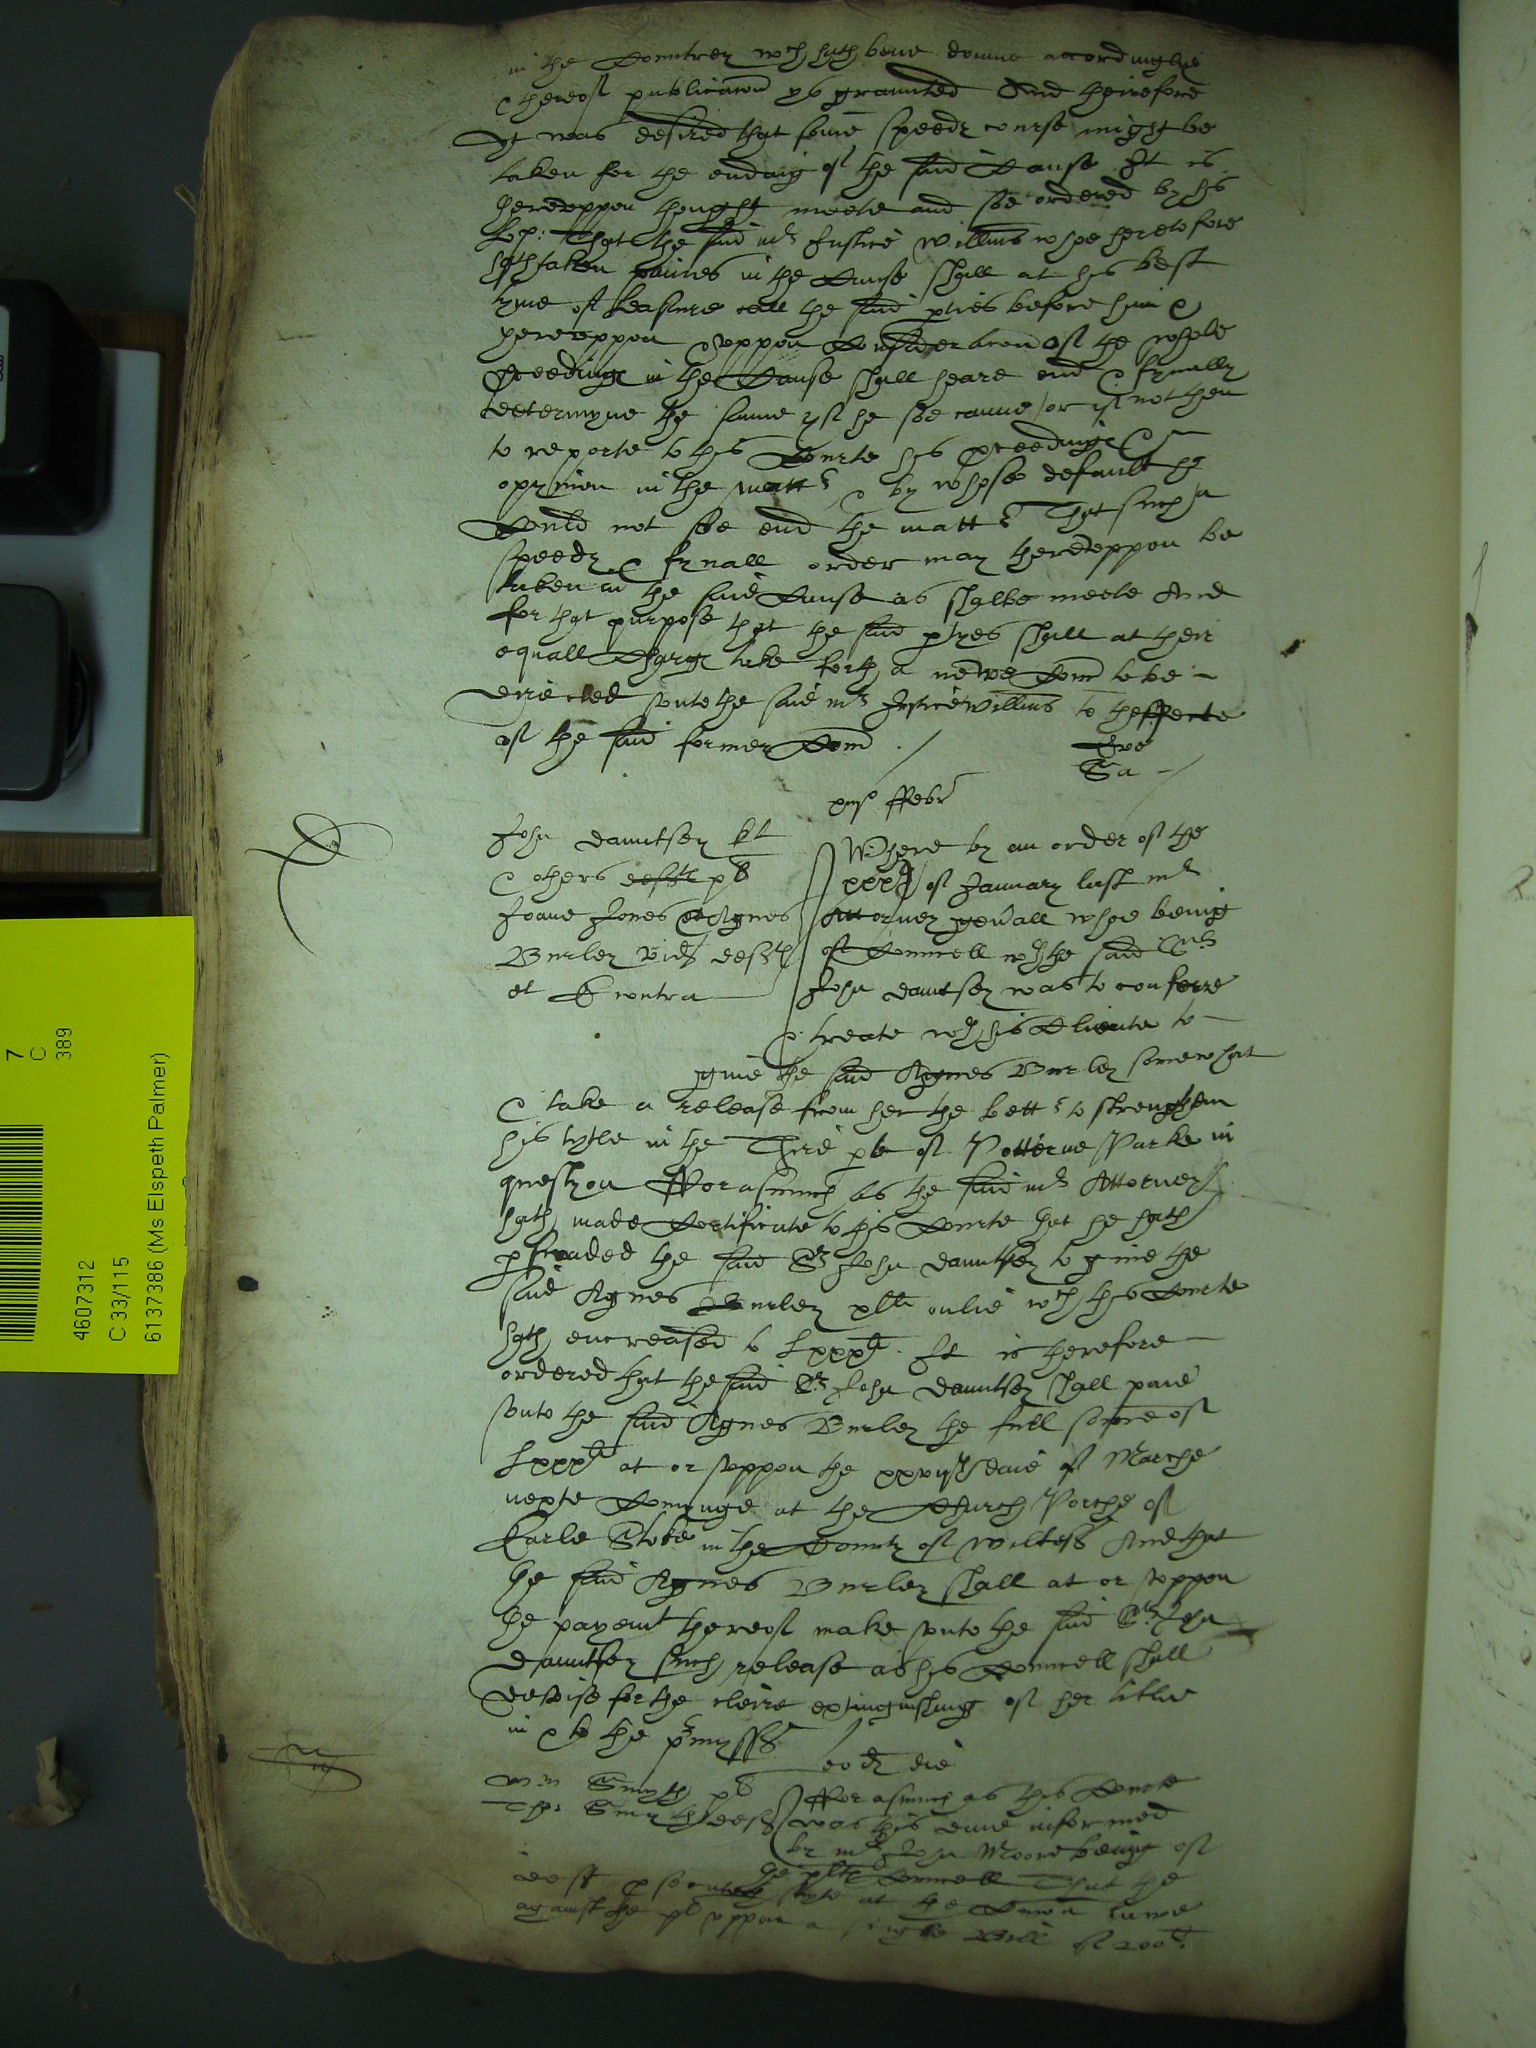 in the Countrey wch hath bene donne accordinglie
& thereof publicacon ys graunted And therefore
yt was desired that some speedy course might be
taken for the ending of the said Cause It is
hereuppon thought meete and soe ordered by his
Lop: That the said mr Justice Willms whoe heretofore
hath taken paines in the Cause shall at his best
tyme of leasure call the said pties before him &
thereuppon & uppon Consideracon of the whole
pceedings in the Cause shall heare end & fynally
determyne the same yf he soe canne / or yf not then
to reporte to this Courte his pceedings &
opynion in the matter & by whose default he
Could not soe end the matter That such a
speedy & fynall order may thereuppon be
taken in the said Cause as shalbe meete And
for that purpose that the said ptyes shall at their
equall Charge take forth a newe Com to be
directed unto the said mr Justice Willms to theffecte
of the said former Com
Sa
pmo ffebr
John dauntsey kt
& others deftes pl
Joane Jones & Agnes
Burley vid deftes
et E contra
Where by an order of the
xxxth of January last mr
Attorney genall whoe being
of Councell wth the said Sr
John dauntsey was to conferre
& treate wth his Cliente to
give the said Agnes Burley somewhat
& take a release from her the better to strengthen
his tytle in the Third pte of Potterne Parke in
question fforasmuch as the said mr Attorney
hath made Certificate to this Courte that he hath
pswaded the said Sr John dauntsey to give the
said Agnes Burley xlli onlie wch this Courte
hath encreased to Lxxxli It is therefore
ordered that the said Sr John dauntsey shall paie
unto the said Agnes Burley the full some of
Lxxxli at or uppon the daie of Marche
nexte Comynge at the Church Porche of
Earle Stoke in the County of Wiltes And that
the said Agnes Burley shall at or uppon
the payemt thereof make unto the said Sr John
dauntsey such release as his Councell shall
devise for the cleire extinguishing of her title
in & to the pmysses
eod die
Wm Smyth pl
Tho: Smyth deft
fforasmuch as this Courte
was this daie informed
by mr John Moore being of
the pltes Councell That the
deft psecuteth suyte at the Comon lawe
against the pl uppon a single Bill of 200li
7
C
389
4607312
C 33/115
6137386 (Ms Elspeth Palmer)